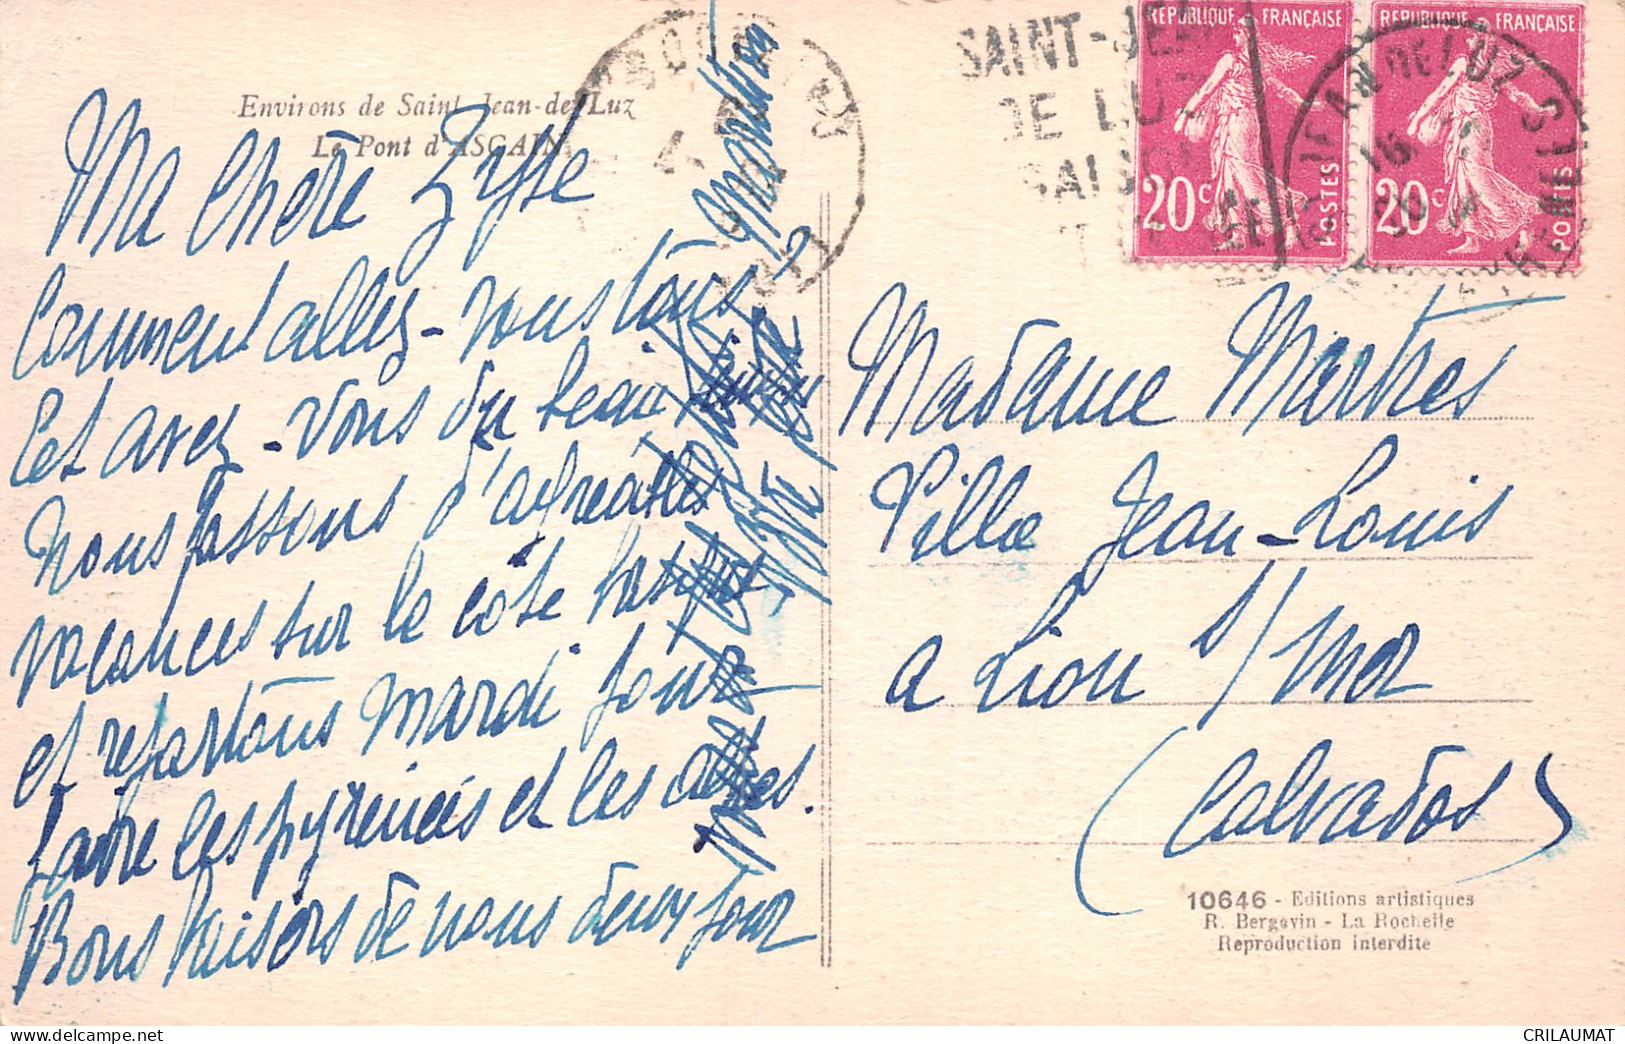 Environs de Saint Jean-de-Luz
Le Pont d'ASCAIN
Ma chère Zyte
Comment allez-vous tous?
Et avez-vous du beau
Nous passons d'agréables
vacances sur la côte basque
et repartons mardi pour
faire les pyrénées et les
Bons baisers de nous deux pour
SAINT-JEAN
DE LUZ
REPUBLIQUE FRANÇAISE
20c
POSTES
REPUBLIQUE FRANÇAISE
20c
POSTES
Madame Martres
Villa Jean-Louis
a Lion s/mer
(Calvados)
10646 - Editions artistiques
R. Bergevin - La Rochelle
Reproduction interdite
CRILAUMAT